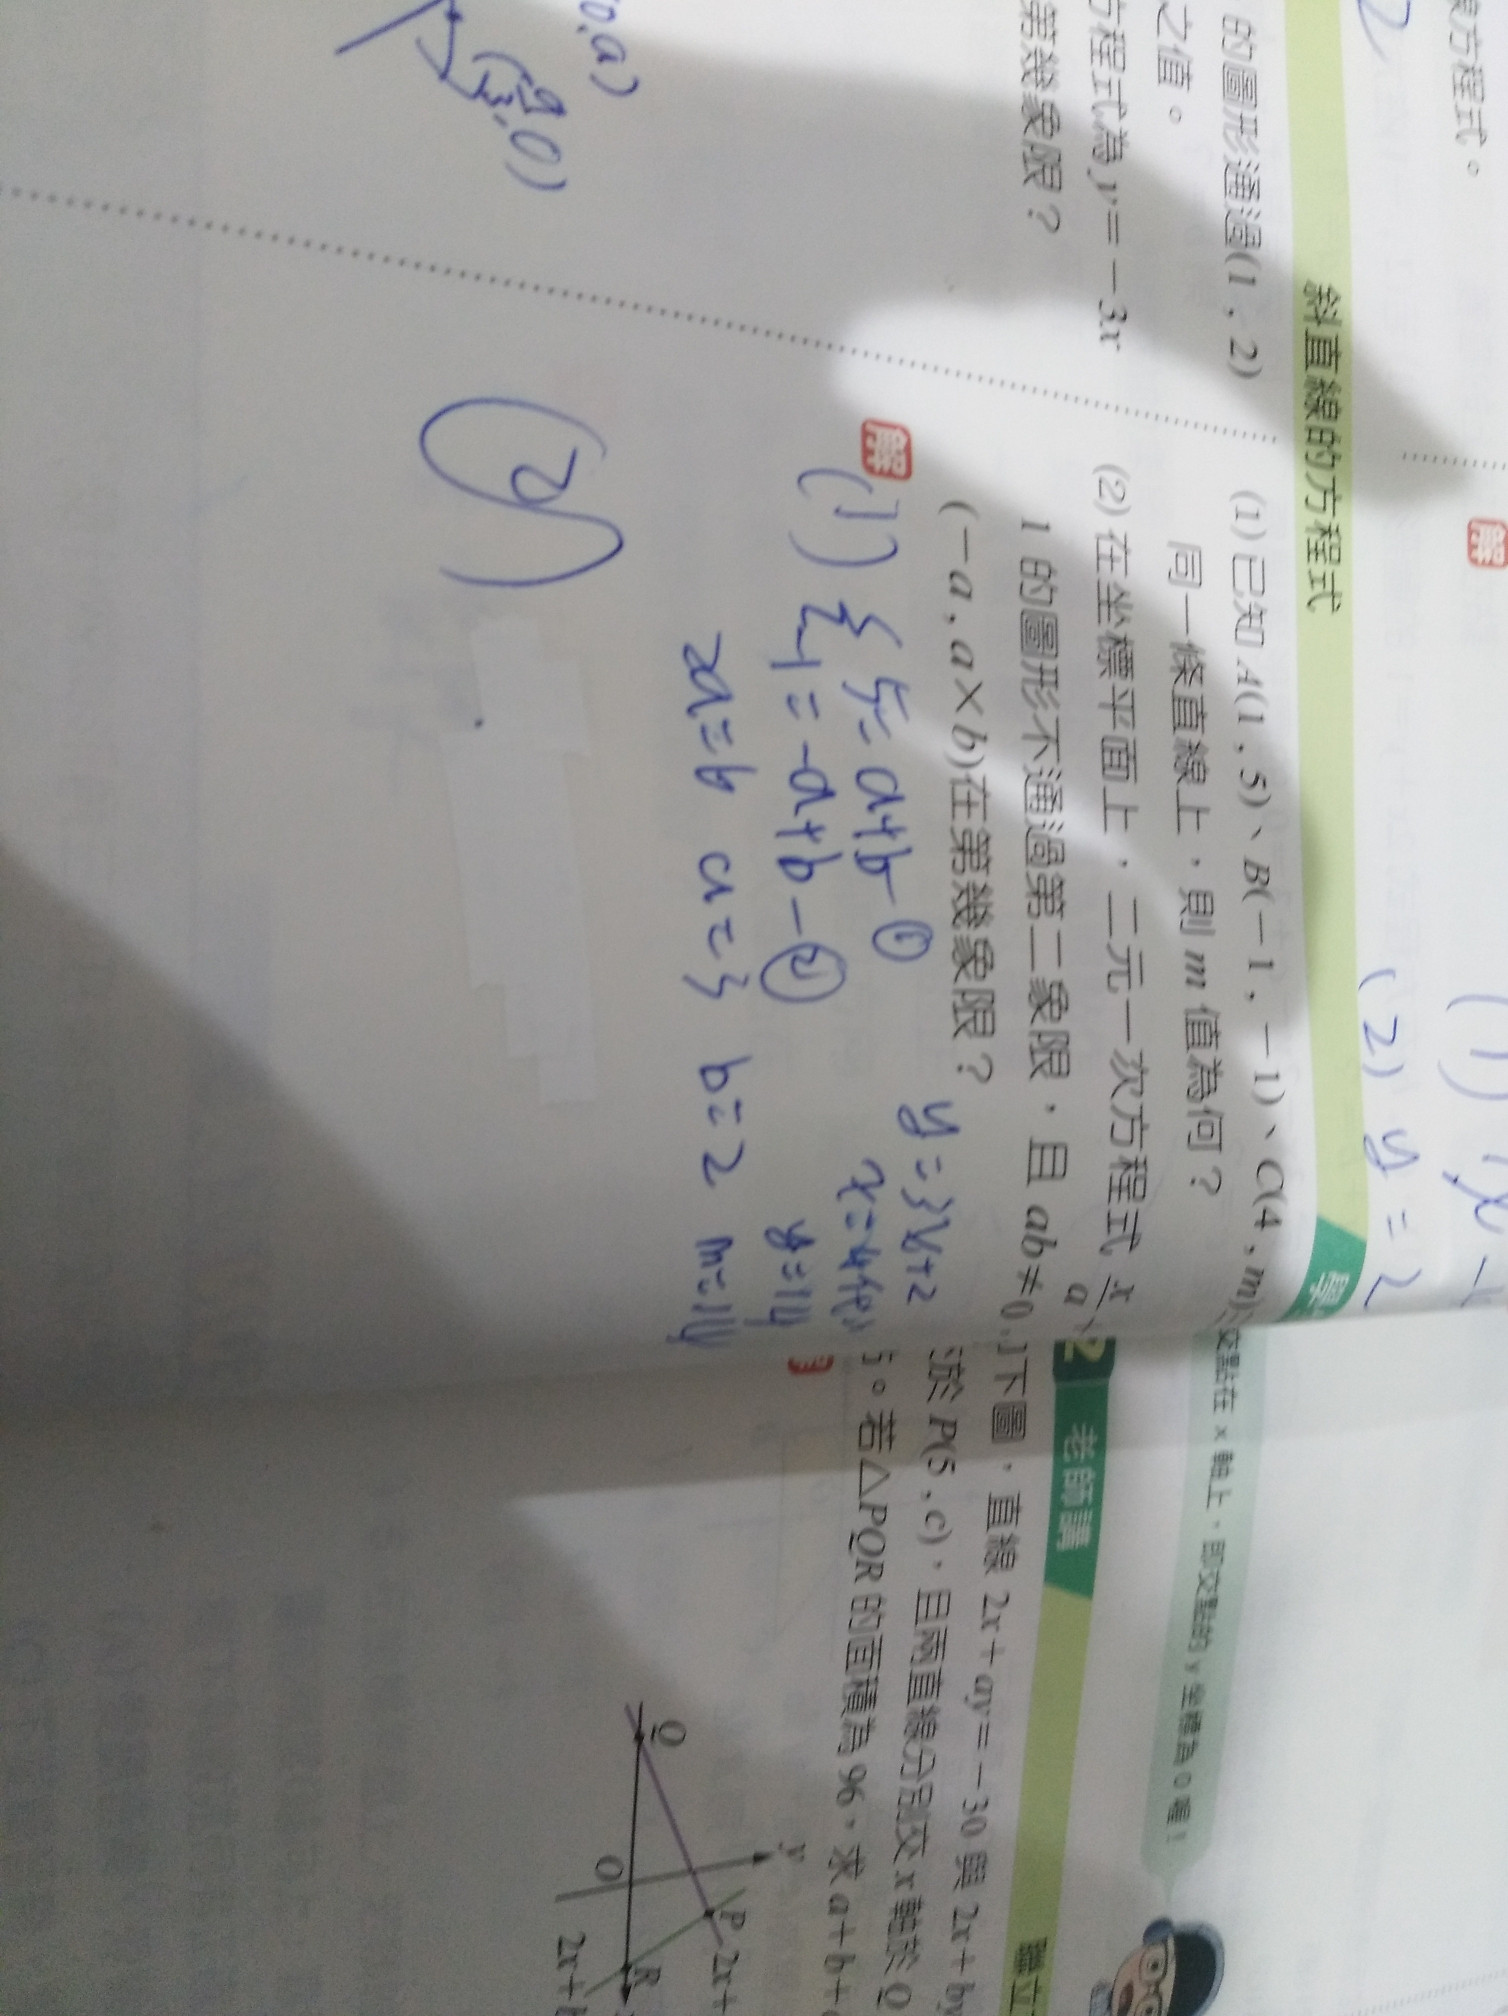 線方程式。
2
(1)
(2) y=2
斜直線的方程式
的圖形通過(1,2)
之值。
方程式為 y=-3x
第幾象限?
0,a)
(a/3,0)
(1) 已知 A(1,5)、B(-1,-1)、C(4,m)
同一條直線上,則 m 值為何?
(2) 在坐標平面上,二元一次方程式 x/a
1 的圖形不通過第二象限,且 ab≠0,
(-a,a×b)在第幾象限?
解
(1) { 5=a+b-①
-1=-a+b-②
a=3 b=2 m=14
y=3x+2
y=14
(2)
交點在 x 軸上,即交點的 y 坐標為 0 喔!
2 老師講
聯立
下圖,直線 2x+ay=-30 與 2x+by
於 P(5,c),且兩直線分別交 x 軸於 Q
。若△PQR 的面積為 96,求 a+b+
y
Q
O
P
R
2x+
2x+b